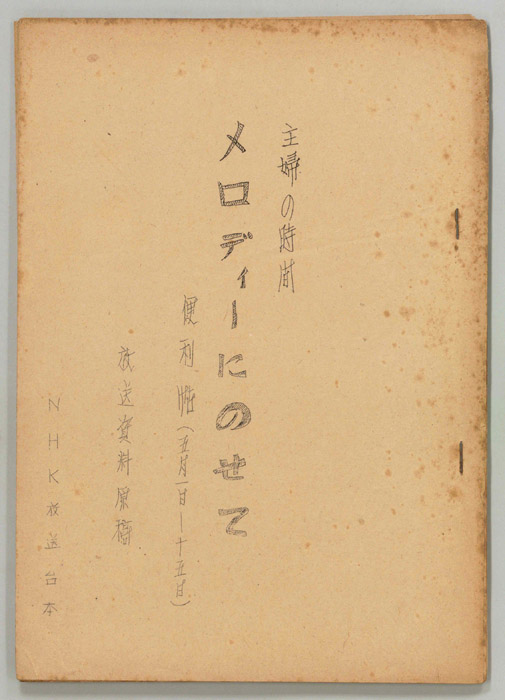 主婦の時間
メロディーにのせて
便利帖(五月一日—十五日)
放送資料原稿
NHK放送台本